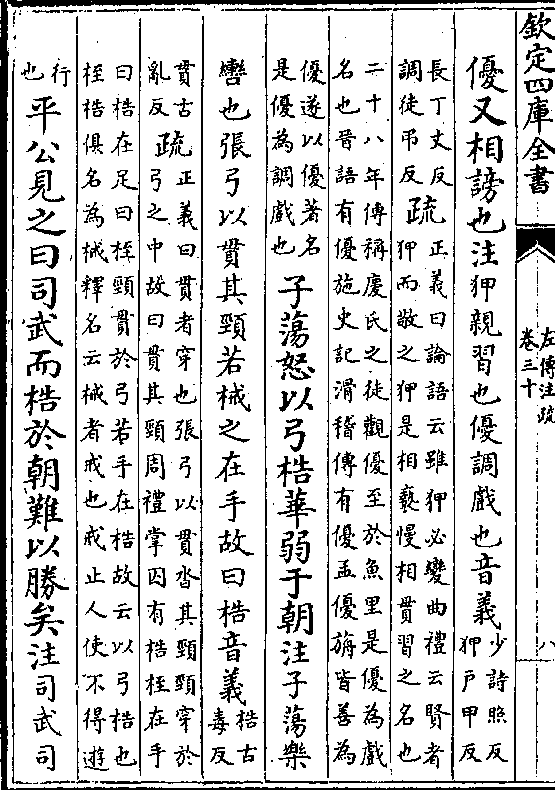 欽定四庫全書
左傳注疏
卷三十
八
優又相謗也注狎親習也優調戲也音義少詩照反狎戶甲反
長丁丈反調徒弔反疏正義曰論語云雖狎必變曲禮云賢者
狎而敬之狎是相褻慢相貫習之名也
二十八年傳稱慶氏之徒觀優至於魚里是優為戲
名也晉語有優施史記滑稽傳有優孟優旃皆善為
優遂以優著名是優為調戲也子蕩怒以弓梏華弱于朝注子蕩樂
轡也張弓以貫其頸若械之在手故曰梏音義梏古毒反
貫古亂反疏正義曰貫者穿也張弓以貫沓其頸頸穿於
弓之中故曰貫其頸周禮掌囚有梏桎在手
曰梏在足曰桎頸貫於弓若手在梏故云以弓梏也
桎梏俱名為械釋名云械者戒也戒止人使不得遊
行也平公見之曰司武而梏於朝難以勝矣注司武司